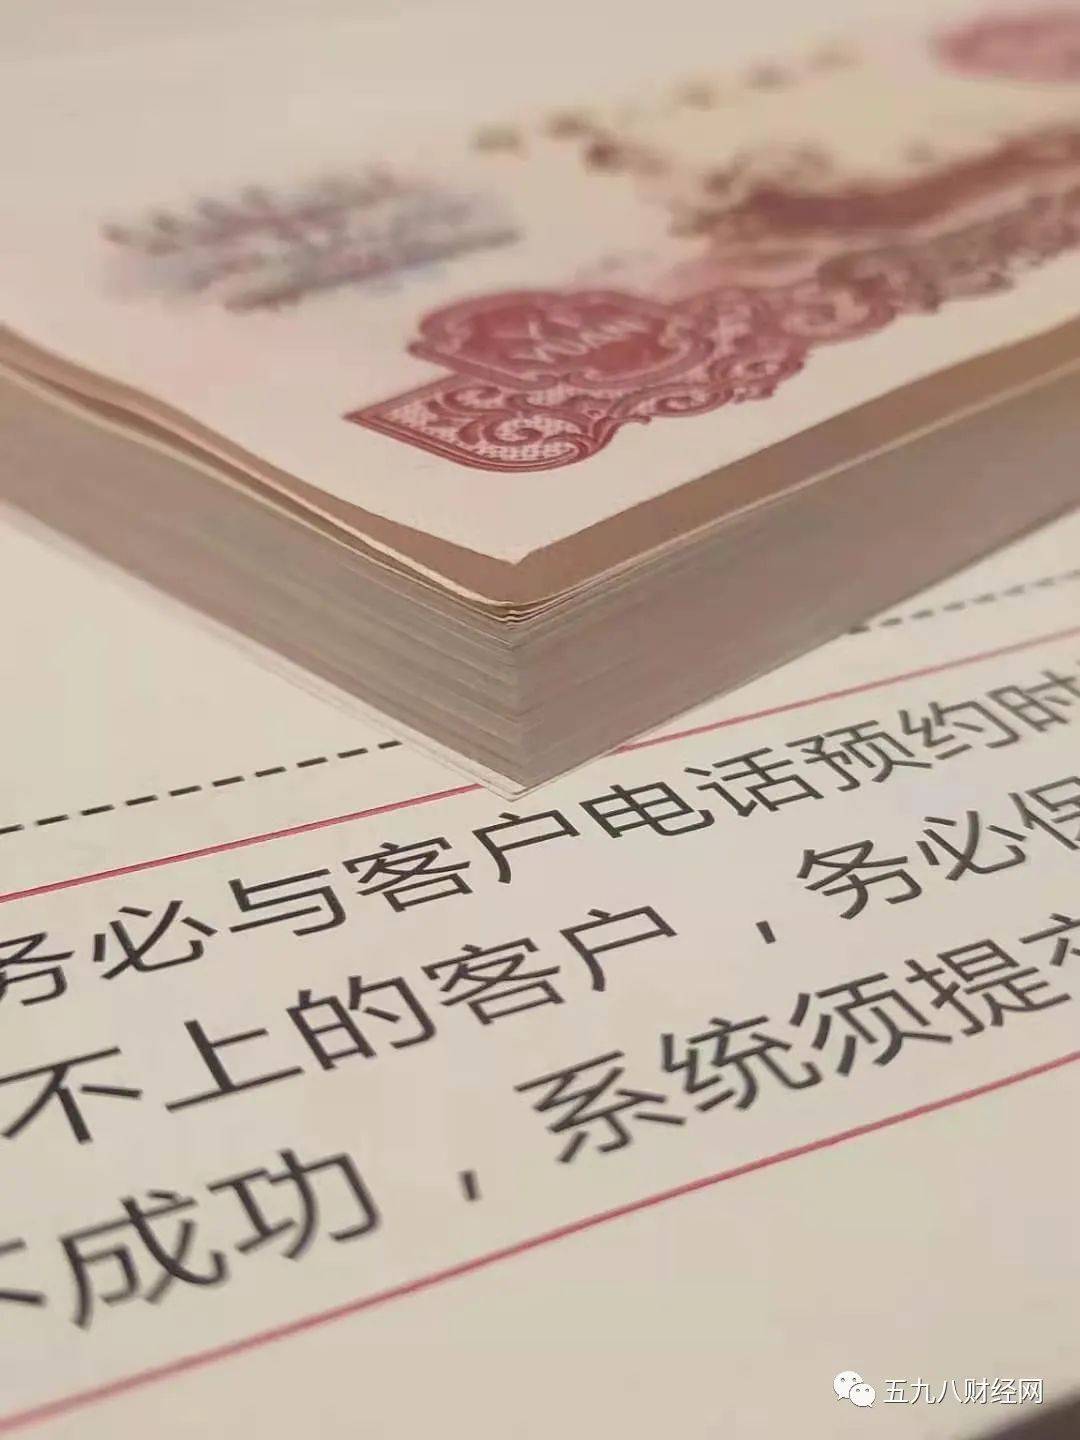 YI YUAN
务必与客户电话预约时
不上的客户，务必保
不成功，系统须提交
五九八财经网